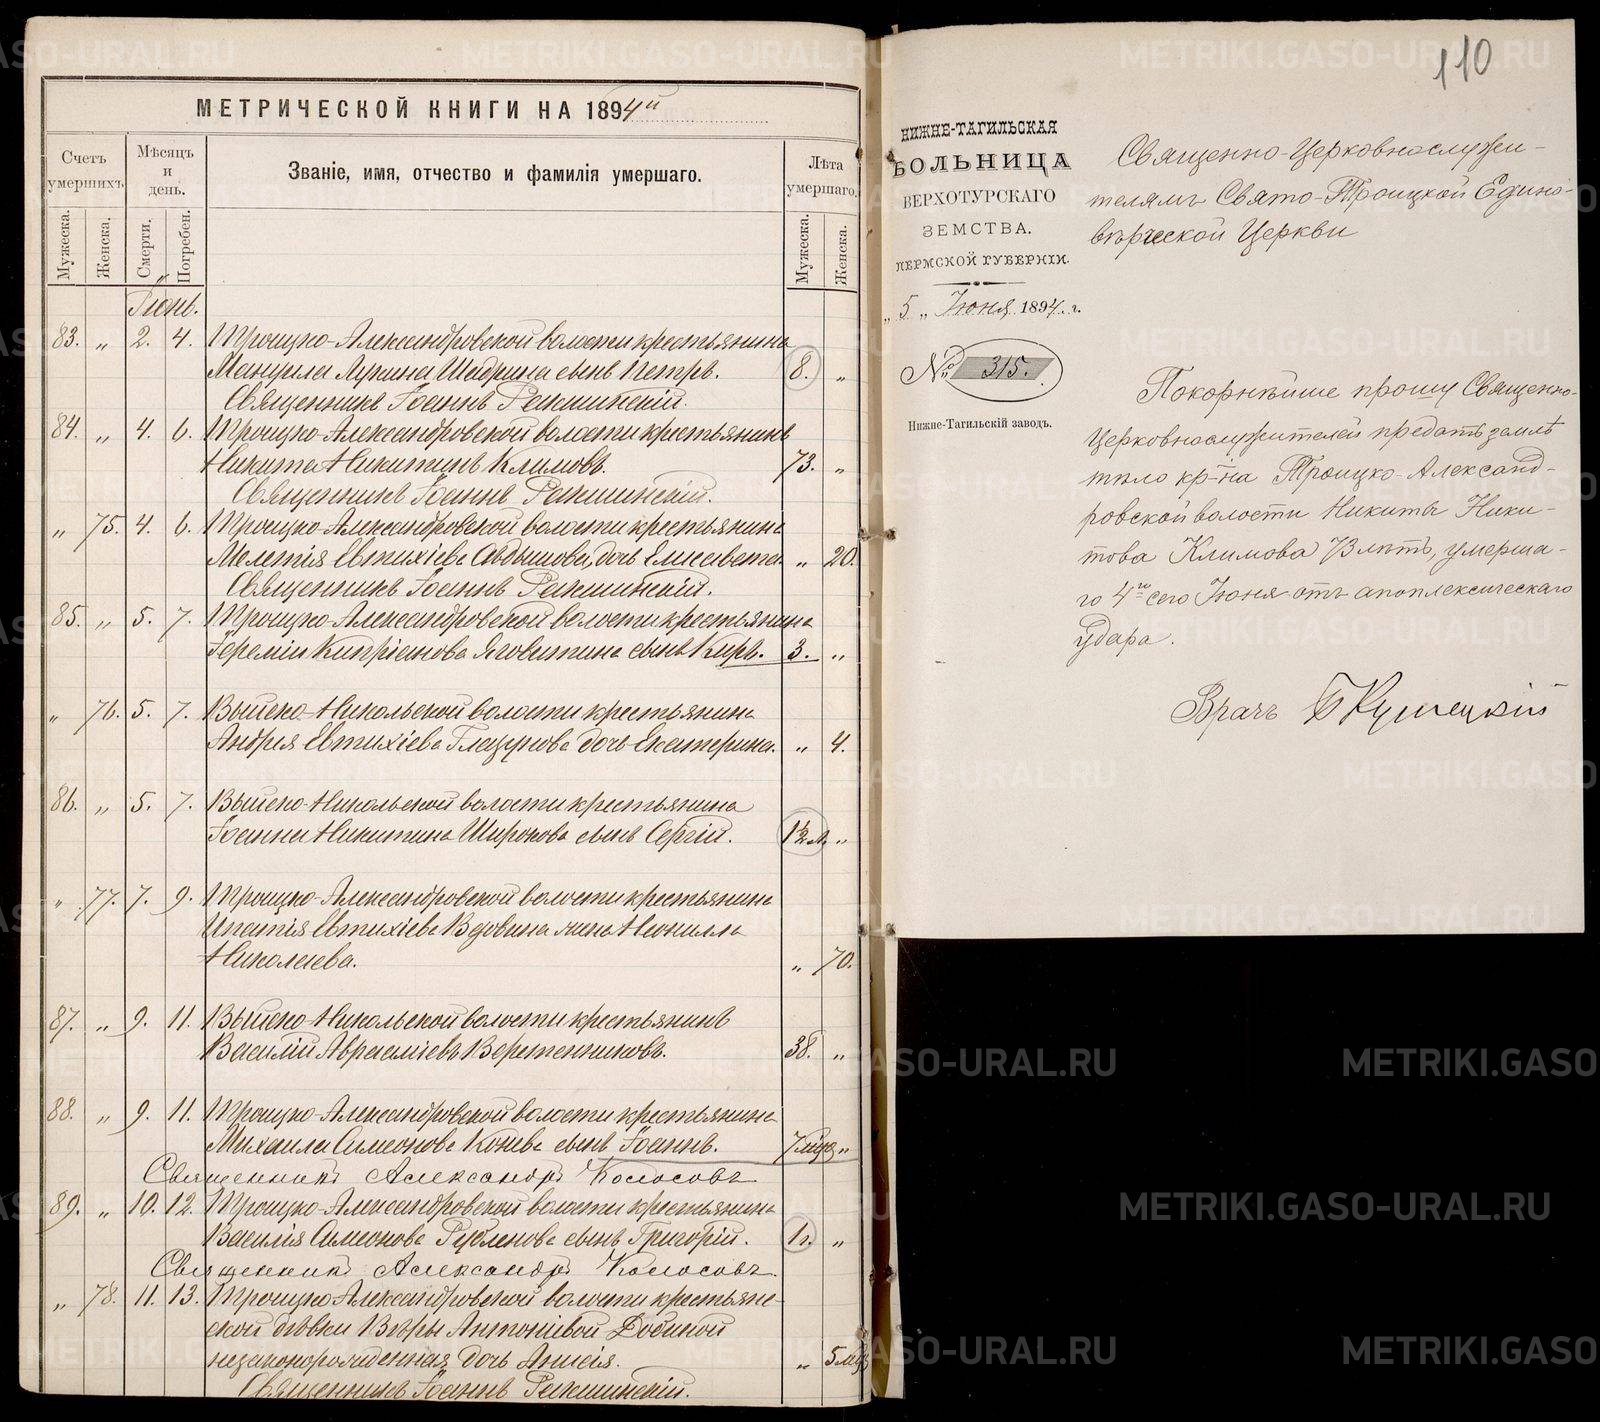 МЕТРИЧЕСКОЙ КНИГИ НА 1894й
Счетъ умершихъ.
Мѣсяцъ и день.
Званіе, имя, отчество и фамилія умершаго.
Лѣта умершаго.
Мужеска. Женска. Смерти. Погребен. Мужеска. Женска.
Іюнь.
83. „ 2. 4. Троицко-Александровской волости крестьянина
Мануила Лукина Шадрина сынъ Петръ. 8. „
Священникъ Іоаннъ
84. „ 4. 6. Троицко-Александровской волости крестьянинъ
Никита Никитинъ Климовъ. 73. „
Священникъ Іоаннъ
„ 75. 4. 6. Троицко-Александровской волости крестьянина
Мелетія Евтихіева дочь Елисавета „ 20.
Священникъ Іоаннъ
85. „ 5. 7. Троицко-Александровской волости крестьянина
Іереміи Кипріанова Яговитина сынъ Киръ. 3. „
„ 76. 5. 7. Выйско-Никольской волости крестьянина
Андрея Евтихіева Глазунова дочь Екатерина. „ 4.
86. „ 5. 7. Выйско-Никольской волости крестьянина
Іоанна Никитина Широкова сынъ Сергій. 1½ м. „
„ 77. 7. 9. Троицко-Александровской волости крестьянина
Ипатія Евтихіева Вдовина жена Неонилла
Николаева. „ 70.
87. „ 9. 11. Выйско-Никольской волости крестьянинъ
Василій Аврааміевъ Веретенниковъ. 38. „
88. „ 9. 11. Троицко-Александровской волости крестьянина
Михаила Симеонова Конева сынъ Іоаннъ. 7 мѣс „
Священникъ Александръ Колосовъ
89. „ 10. 12. Троицко-Александровской волости крестьянина
Василія Симеонова Рубленова сынъ Григорій. 1 г. „
Священникъ Александръ Колосовъ.
„ 78. 11. 13. Троицко-Александровской волости крестьян-
ской дѣвки Вѣры Антоніевой
незаконорожденная дочь Анисія. „ 5 мѣс
Священникъ Іоаннъ
110
НИЖНЕ-ТАГИЛЬСКАЯ
БОЛЬНИЦА
ВЕРХОТУРСКАГО
ЗЕМСТВА.
ПЕРМСКОЙ ГУБЕРНІИ.
„ 5 „ Іюня 1894 г.
№ 315.
Нижне-Тагильскій заводъ.
Священно-Церковнослужи-
телямъ Свято-Троицкой Едино-
вѣрческой Церкви
Покорнѣйше прошу Священно-
Церковнослужителей предать землѣ
тѣло кр-на Троицко-Александ-
ровской волости Никиты Ники-
това Климова 73 лѣтъ, умерша-
го 4го сего Іюня отъ апоплексическаго
удара.
Врачъ
METRIKI.GASO-URAL.RU